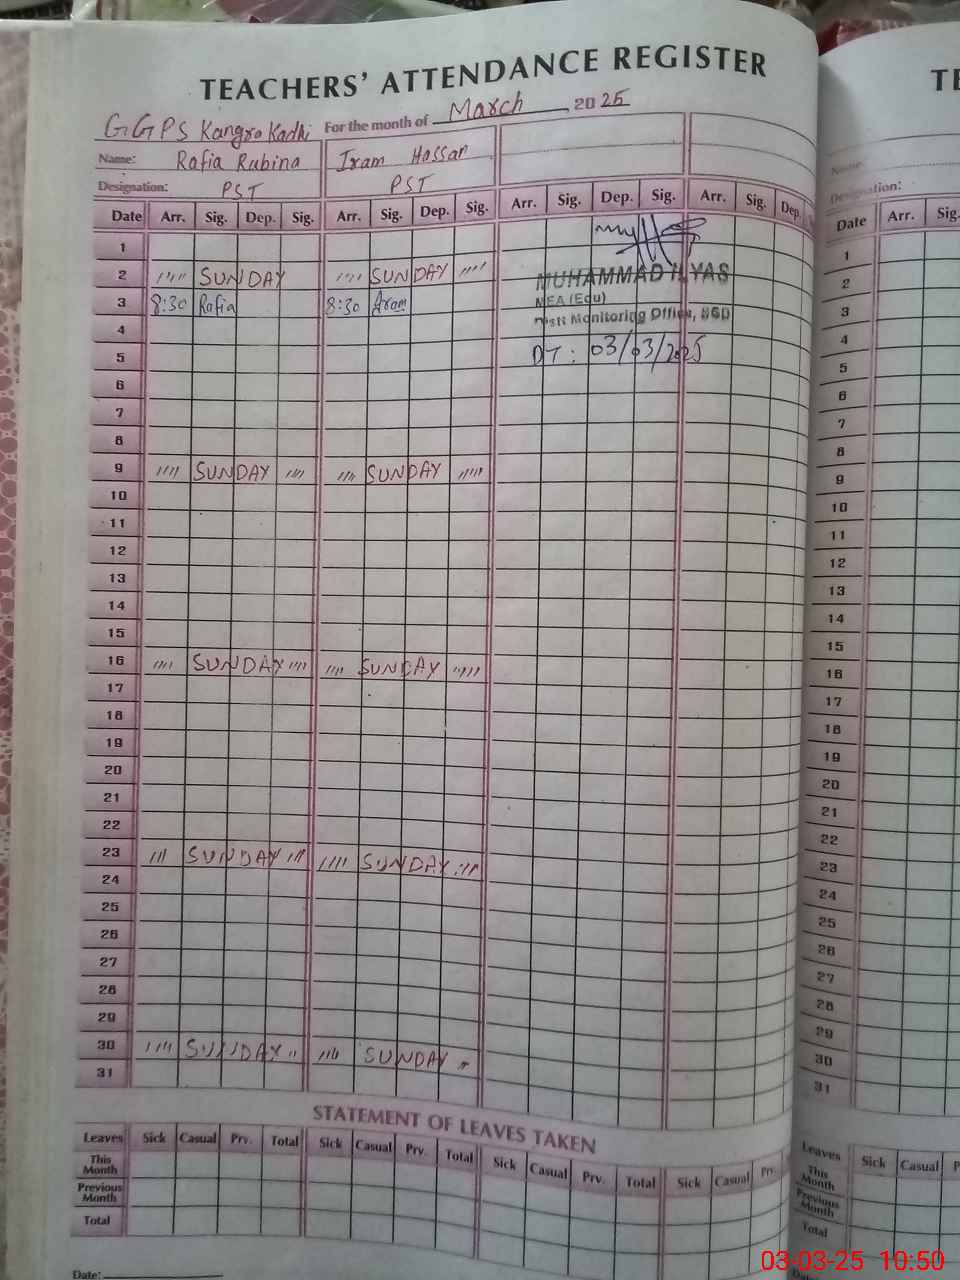 TEACHERS' ATTENDANCE REGISTER
GGPS Kangra Kadhi For the month of March 2025
Name: Rafia Rubina Iram Hassan
Designation: PST PST
Date Arr. Sig. Dep. Sig. Arr. Sig. Dep. Sig. Arr. Sig. Dep. Sig. Arr. Sig. Dep.
1
2 '''' SUNDAY '''' SUNDAY ''''
3 8:30 Rafia 8:30 Iram
MUHAMMAD ILYAS
MEA (Edu)
Distt Monitoring Office, SGD
DT: 03/03/2025
4
5
6
7
8
9 '''' SUNDAY '''' ''' SUNDAY '''''
10
11
12
13
14
15
16 '''' SUNDAY '''' '''' SUNDAY '''''
17
18
19
20
21
22
23 ''' SUNDAY ''' '''' SUNDAY ''''
24
25
26
27
28
29
30 '''' SUNDAY '' '''' SUNDAY ''
31
STATEMENT OF LEAVES TAKEN
Leaves Sick Casual Prv. Total Sick Casual Prv. Total Sick Casual Prv. Total Sick Casual Prv.
This Month
Previous Month
Total
Date:
TE
Name:
Designation:
Date Arr. Sig.
1
2
3
4
5
6
7
8
9
10
11
12
13
14
15
16
17
18
19
20
21
22
23
24
25
26
27
28
29
30
31
Leaves Sick Casual P
This Month
Previous Month
Total
03-03-25 10:50